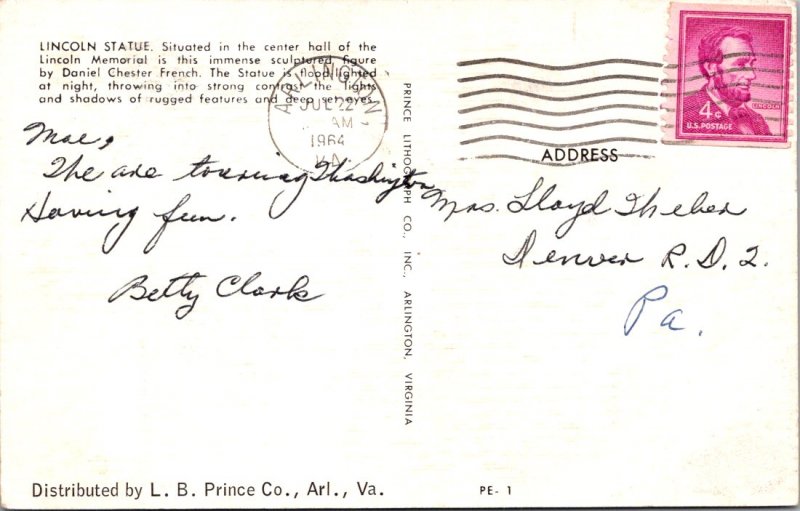 LINCOLN STATUE. Situated in the center hall of the
Lincoln Memorial is this immense sculptured figure
by Daniel Chester French. The Statue is flood lighted
at night, throwing into strong contrast the lights
and shadows of rugged features and deep set eyes.
ARLINGTON
JUL 22
AM
1964
VA.
4¢
LINCOLN
U.S. POSTAGE
Mae,
The are touring Washington
Having fun.
Betty Clark
PRINCE LITHOGRAPH CO., INC., ARLINGTON, VIRGINIA
ADDRESS
Mrs. Lloyd
Denver R.D. 2.
Pa.
Distributed by L. B. Prince Co., Arl., Va.
PE- 1